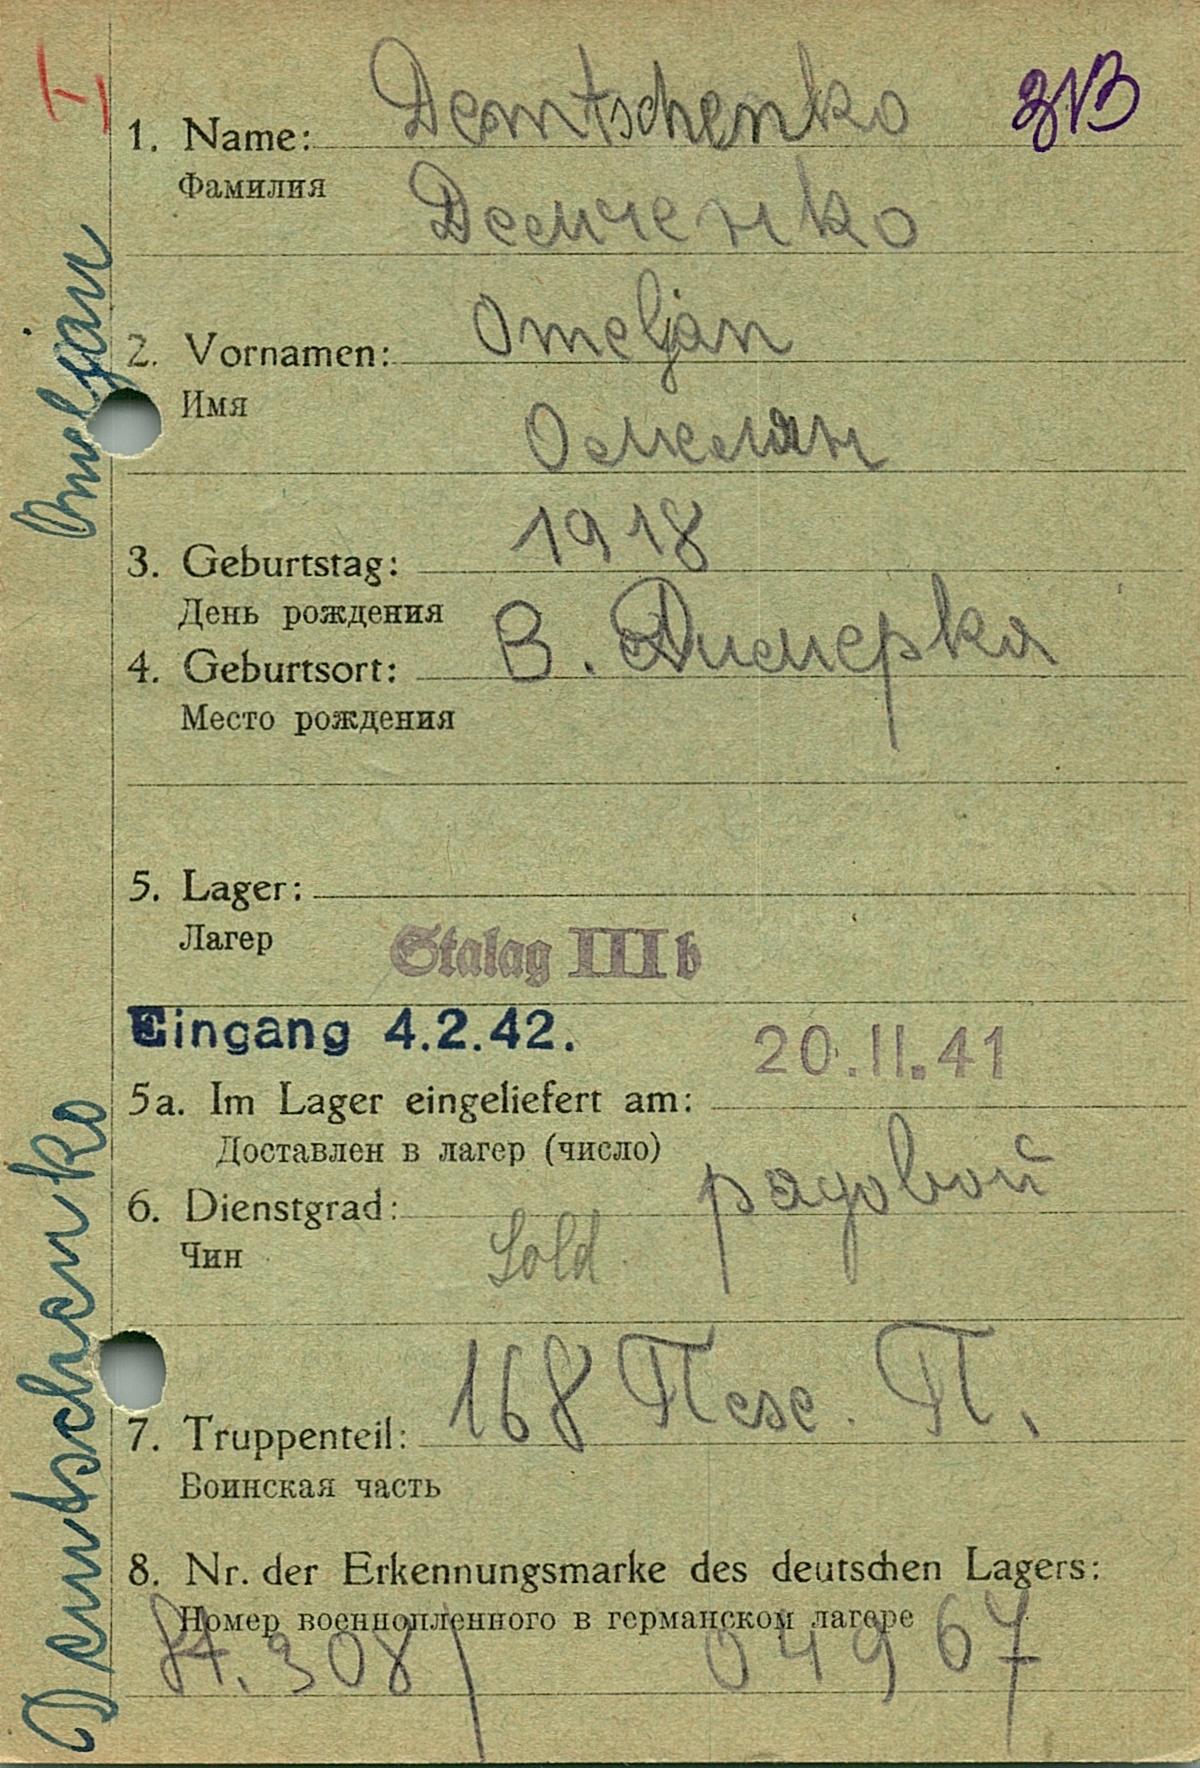 I
1. Name: Demtschenko 3B
Фамилия Демченко
2. Vornamen: Omeljan
Имя
Омелян
3. Geburtstag: 1918
День рождения
4. Geburtsort: В. Димерка
Место рождения
5. Lager:
Лагер Stalag III b
Eingang 4.2.42. 20.II.41
5a. Im Lager eingeliefert am:
Доставлен в лагер (число)
6. Dienstgrad: рядовой
Чин Sold.
7. Truppenteil: 168 Песе. П.
Воинская часть
8. Nr. der Erkennungsmarke des deutschen Lagers:
Номер военнопленного в германском лагере
St. 308 / 04967
Demtschenko Omeljan